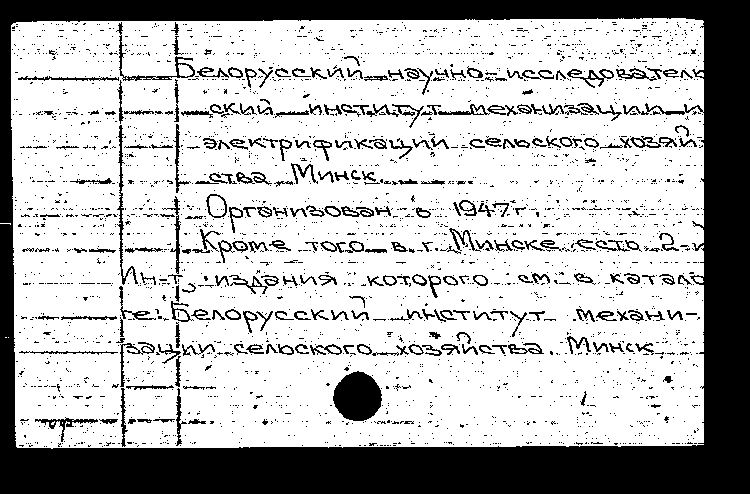 Белорусский научно-исследователь
ский институт механизации и
электрификации сельского хозяй-
ства Минск.
Организован в 1947г.
Кроме того в г. Минске есть 2-й
Ин-т, издания которого см. в катало
ге: Белорусский институт механи-
зации сельского хозяйства. Минск